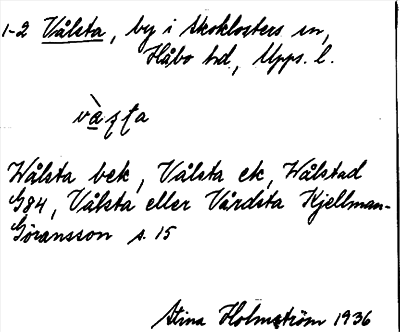 1-2 Vålsta, by i Skoklosters sn,
Håbo hd, Upps. l.
Wålsta bek, Vålsta ek, Wålstad
G84, Vålsta eller Vårdsta Kjellman-
Göransson s. 15
Stina Holmström 1936